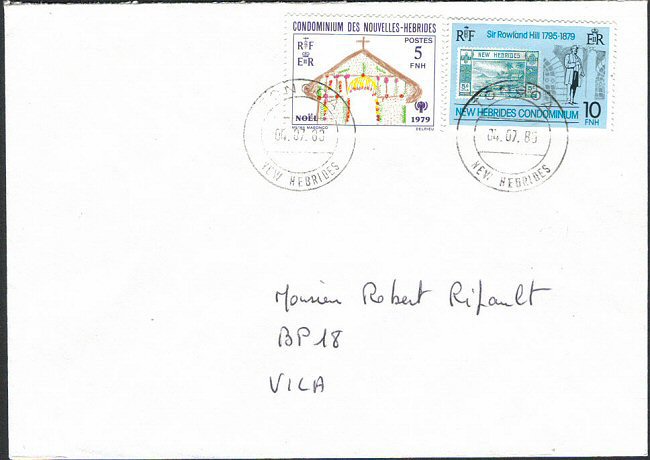 CONDOMINIUM DES NOUVELLES-HEBRIDES
RF
ER
POSTES
5
FNH
NOËL
1979
DELRIEU
RF
Sir Rowland Hill 1795-1879
EIIR
NEW HEBRIDES
NEW HEBRIDES CONDOMINIUM
10
FNH
04.07.80
NEW HEBRIDES
04.07.80
NEW HEBRIDES
Monsieur Robert Ripault
BP 18
VILA